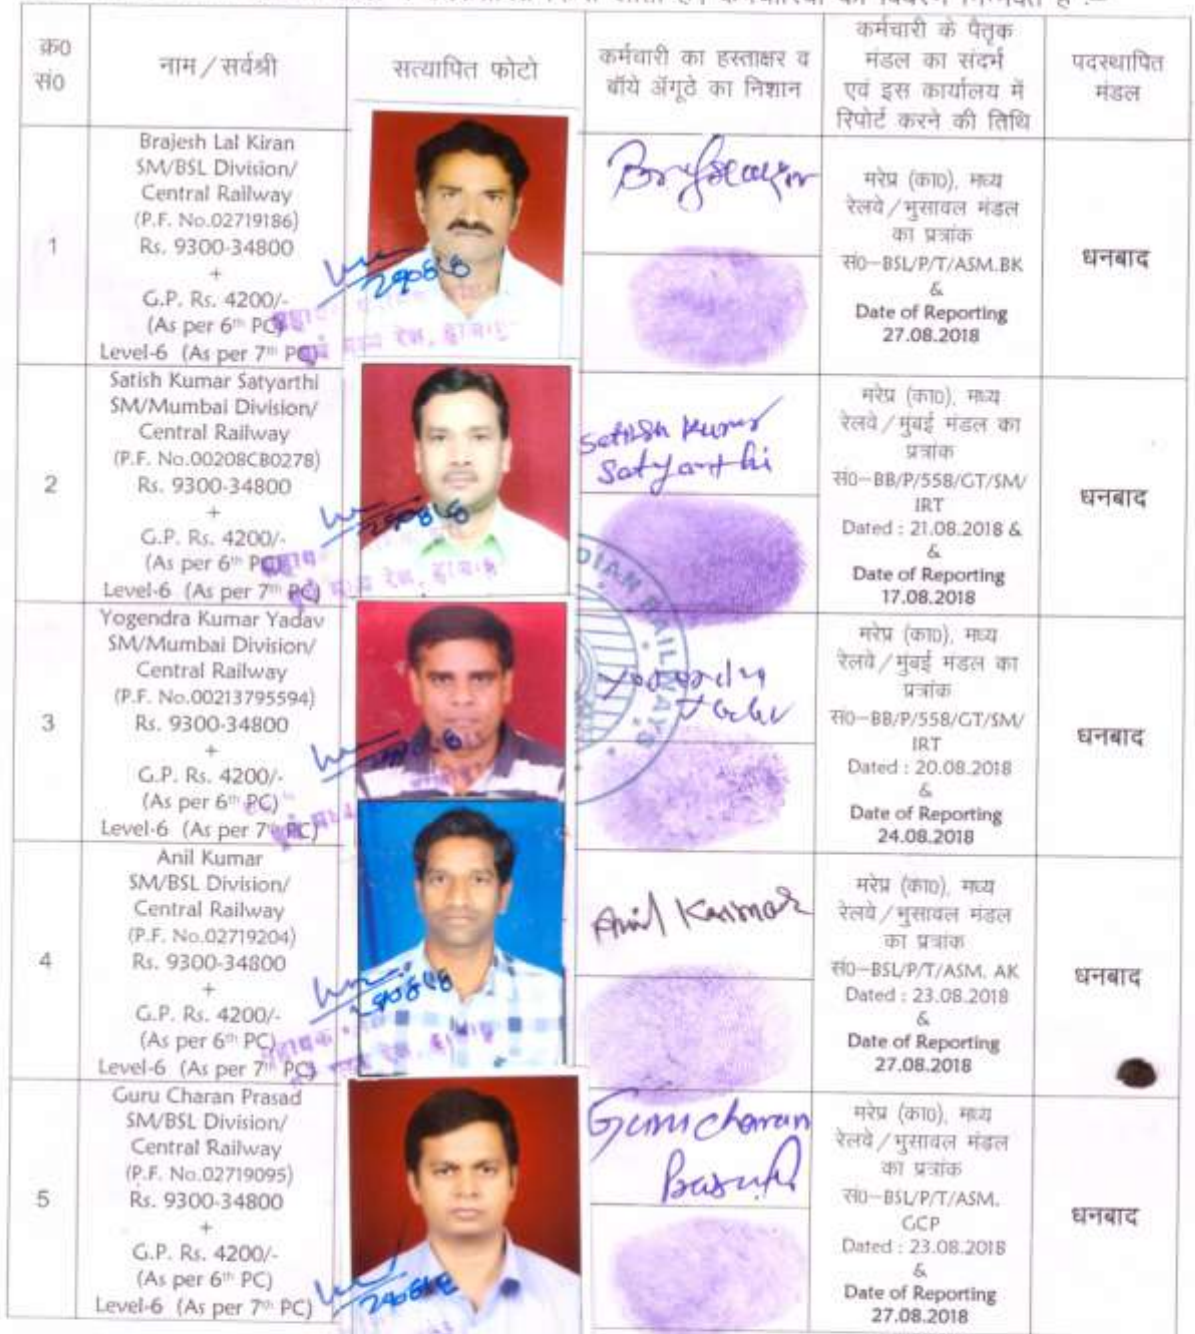 क्र0
सं0
नाम / सर्वश्री
सत्यापित फोटो
कर्मचारी का हस्ताक्षर व
बॉये अँगूठे का निशान
कर्मचारी के पैतृक
मंडल का संदर्भ
एवं इस कार्यालय में
रिपोर्ट करने की तिथि
पदस्थापित
मंडल
1
Brajesh Lal Kiran
SM/BSL Division/
Central Railway
(P.F. No.02719186)
Rs. 9300-34800
+
G.P. Rs. 4200/-
(As per 6th PC)
Level-6 (As per 7th PC)
मरेप्र (का0), मध्य
रेलवे / भुसावल मंडल
का पत्रांक
सं0–BSL/P/T/ASM.BK
&
Date of Reporting
27.08.2018
धनबाद
2
Satish Kumar Satyarthi
SM/Mumbai Division/
Central Railway
(P.F. No.00208CB0278)
Rs. 9300-34800
+
G.P. Rs. 4200/-
(As per 6th PC)
Level-6 (As per 7th PC)
Satish Kumar
Satyarthi
मरेप्र (का0), मध्य
रेलवे / मुंबई मंडल का
पत्रांक
सं0–BB/P/558/GT/SM/
IRT
Dated : 21.08.2018 &
&
Date of Reporting
17.08.2018
धनबाद
INDIAN RAILWAYS
3
Yogendra Kumar Yadav
SM/Mumbai Division/
Central Railway
(P.F. No.00213795594)
Rs. 9300-34800
+
G.P. Rs. 4200/-
(As per 6th PC)
Level-6 (As per 7th PC)
मरेप्र (का0), मध्य
रेलवे / मुंबई मंडल का
पत्रांक
सं0–BB/P/558/GT/SM/
IRT
Dated : 20.08.2018
&
Date of Reporting
24.08.2018
धनबाद
4
Anil Kumar
SM/BSL Division/
Central Railway
(P.F. No.02719204)
Rs. 9300-34800
+
G.P. Rs. 4200/-
(As per 6th PC)
Level-6 (As per 7th PC)
Anil Kumar
मरेप्र (का0), मध्य
रेलवे / भुसावल मंडल
का पत्रांक
सं0–BSL/P/T/ASM. AK
Dated : 23.08.2018
&
Date of Reporting
27.08.2018
धनबाद
5
Guru Charan Prasad
SM/BSL Division/
Central Railway
(P.F. No.02719095)
Rs. 9300-34800
+
G.P. Rs. 4200/-
(As per 6th PC)
Level-6 (As per 7th PC)
Guru charan
मरेप्र (का0), मध्य
रेलवे / भुसावल मंडल
का पत्रांक
सं0–BSL/P/T/ASM.
GCP
Dated : 23.08.2018
&
Date of Reporting
27.08.2018
धनबाद